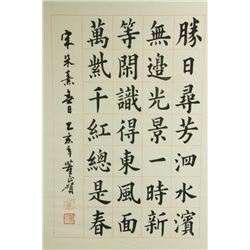 勝日尋芳泗水濱
無邊光景一時新
等閑識得東風面
萬紫千紅總是春
宋朱熹春日 乙亥年